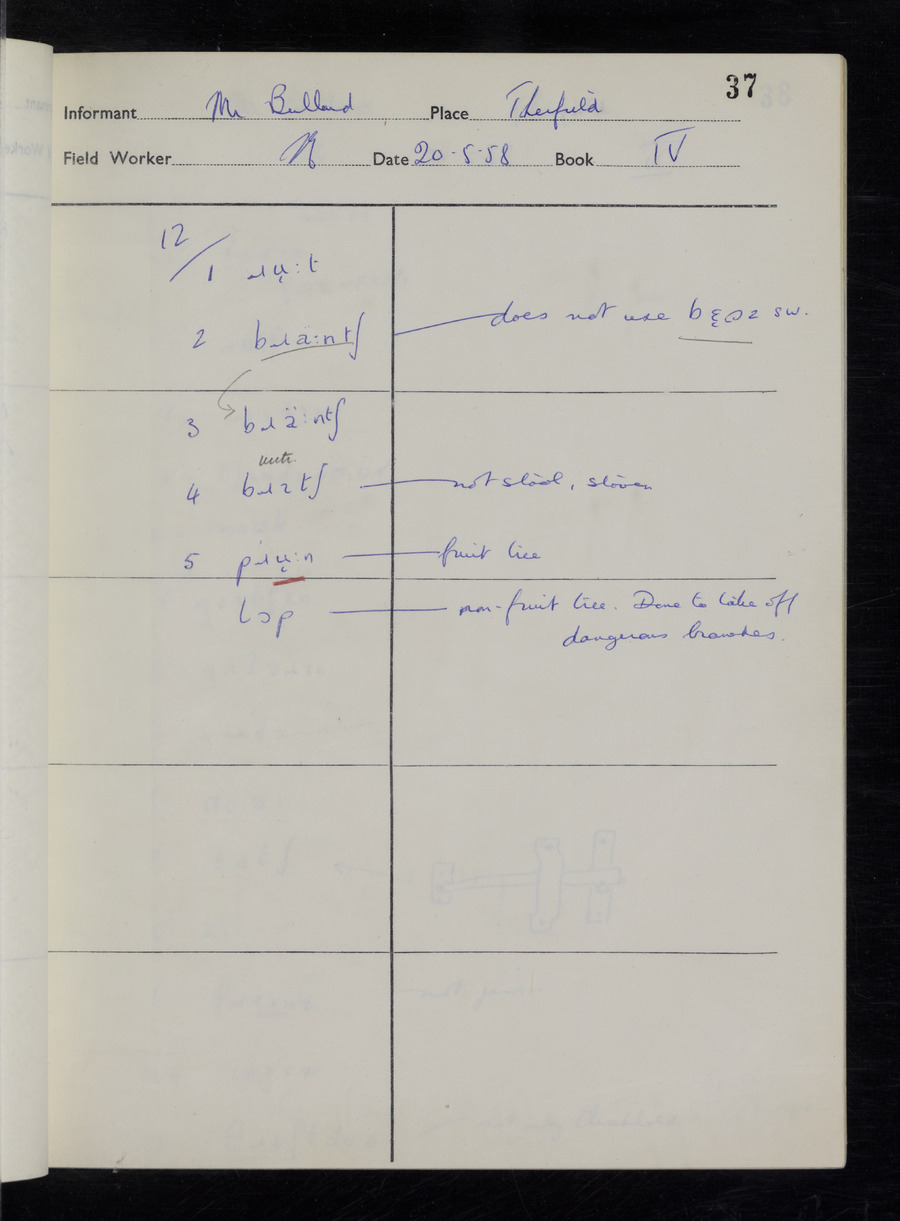 37
Informant Mr Bullard Place Therfield
Field Worker Date 20·5·58 Book IV
12/1 ɹu̜:t
2 bɹa:ntʃ does not use sw.
3 bɹä:ntʃ
4 tʃ not stool, stoven
5 pɹu̜:n fruit tree
lɔp non-fruit tree. Done to take off
dangerous branches.